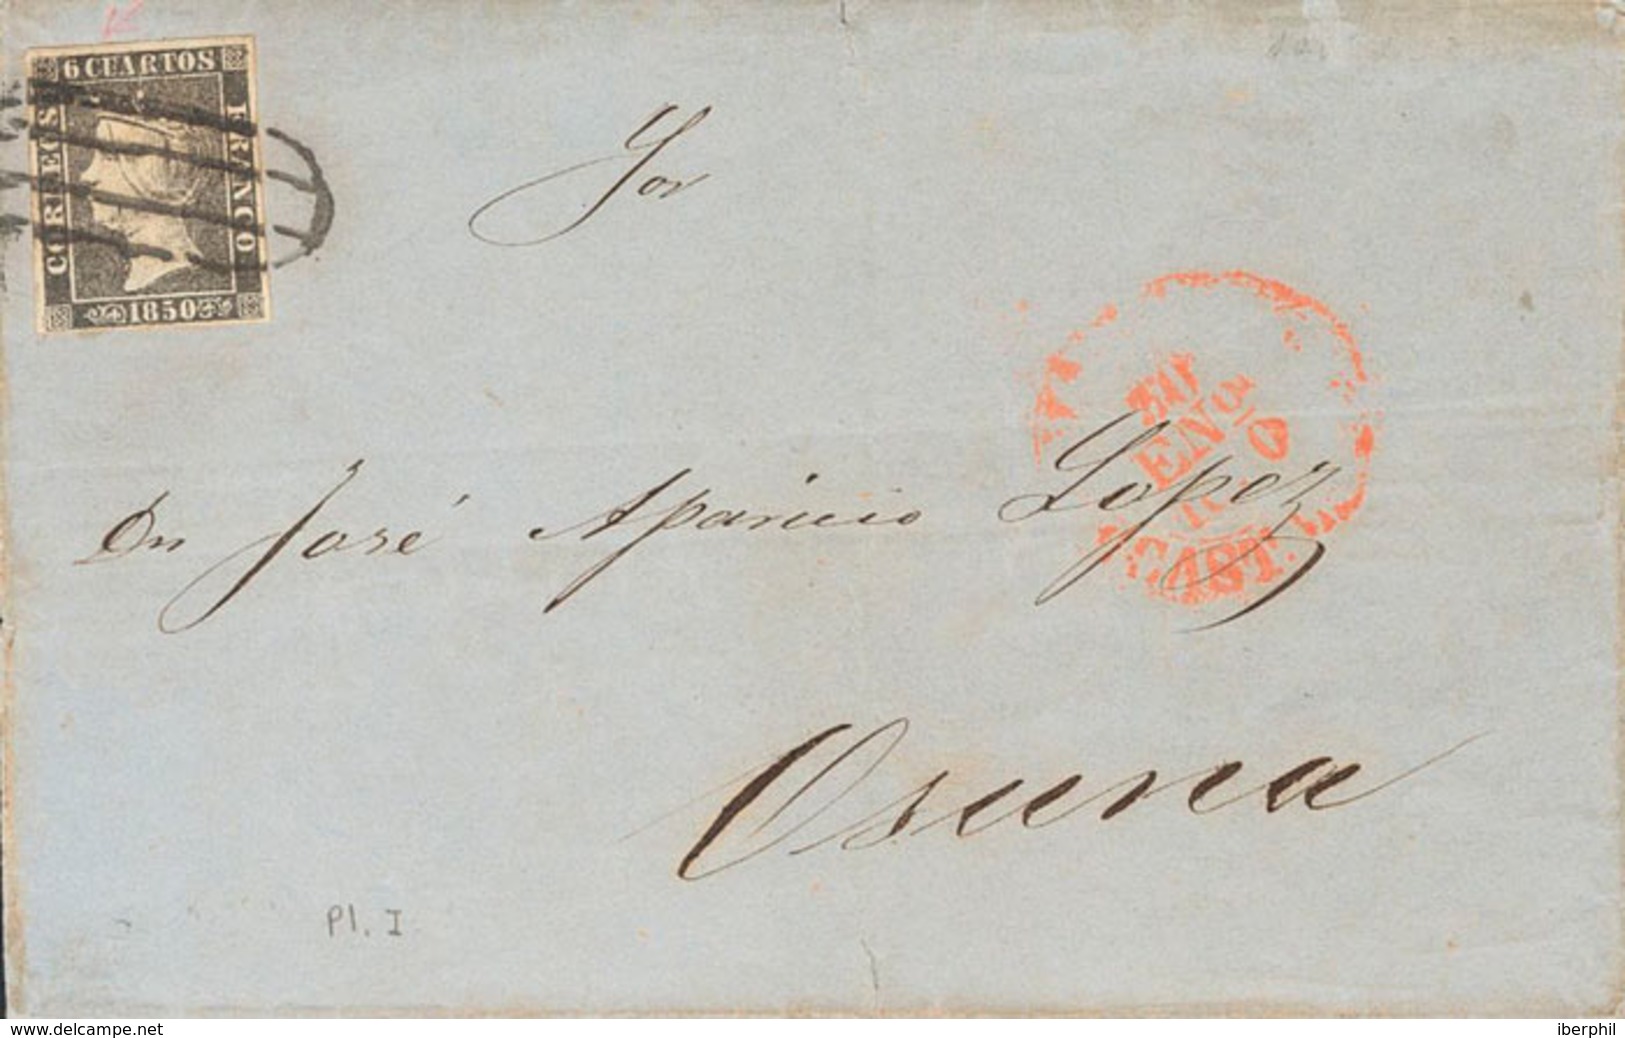 6 CUARTOS
CORREOS
FRANCO
1850
Sor
Dn José Aparicio Lopez
30
EN
1850
CAST.
Osuna
Pl. I
www.delcampe.net
iberphil